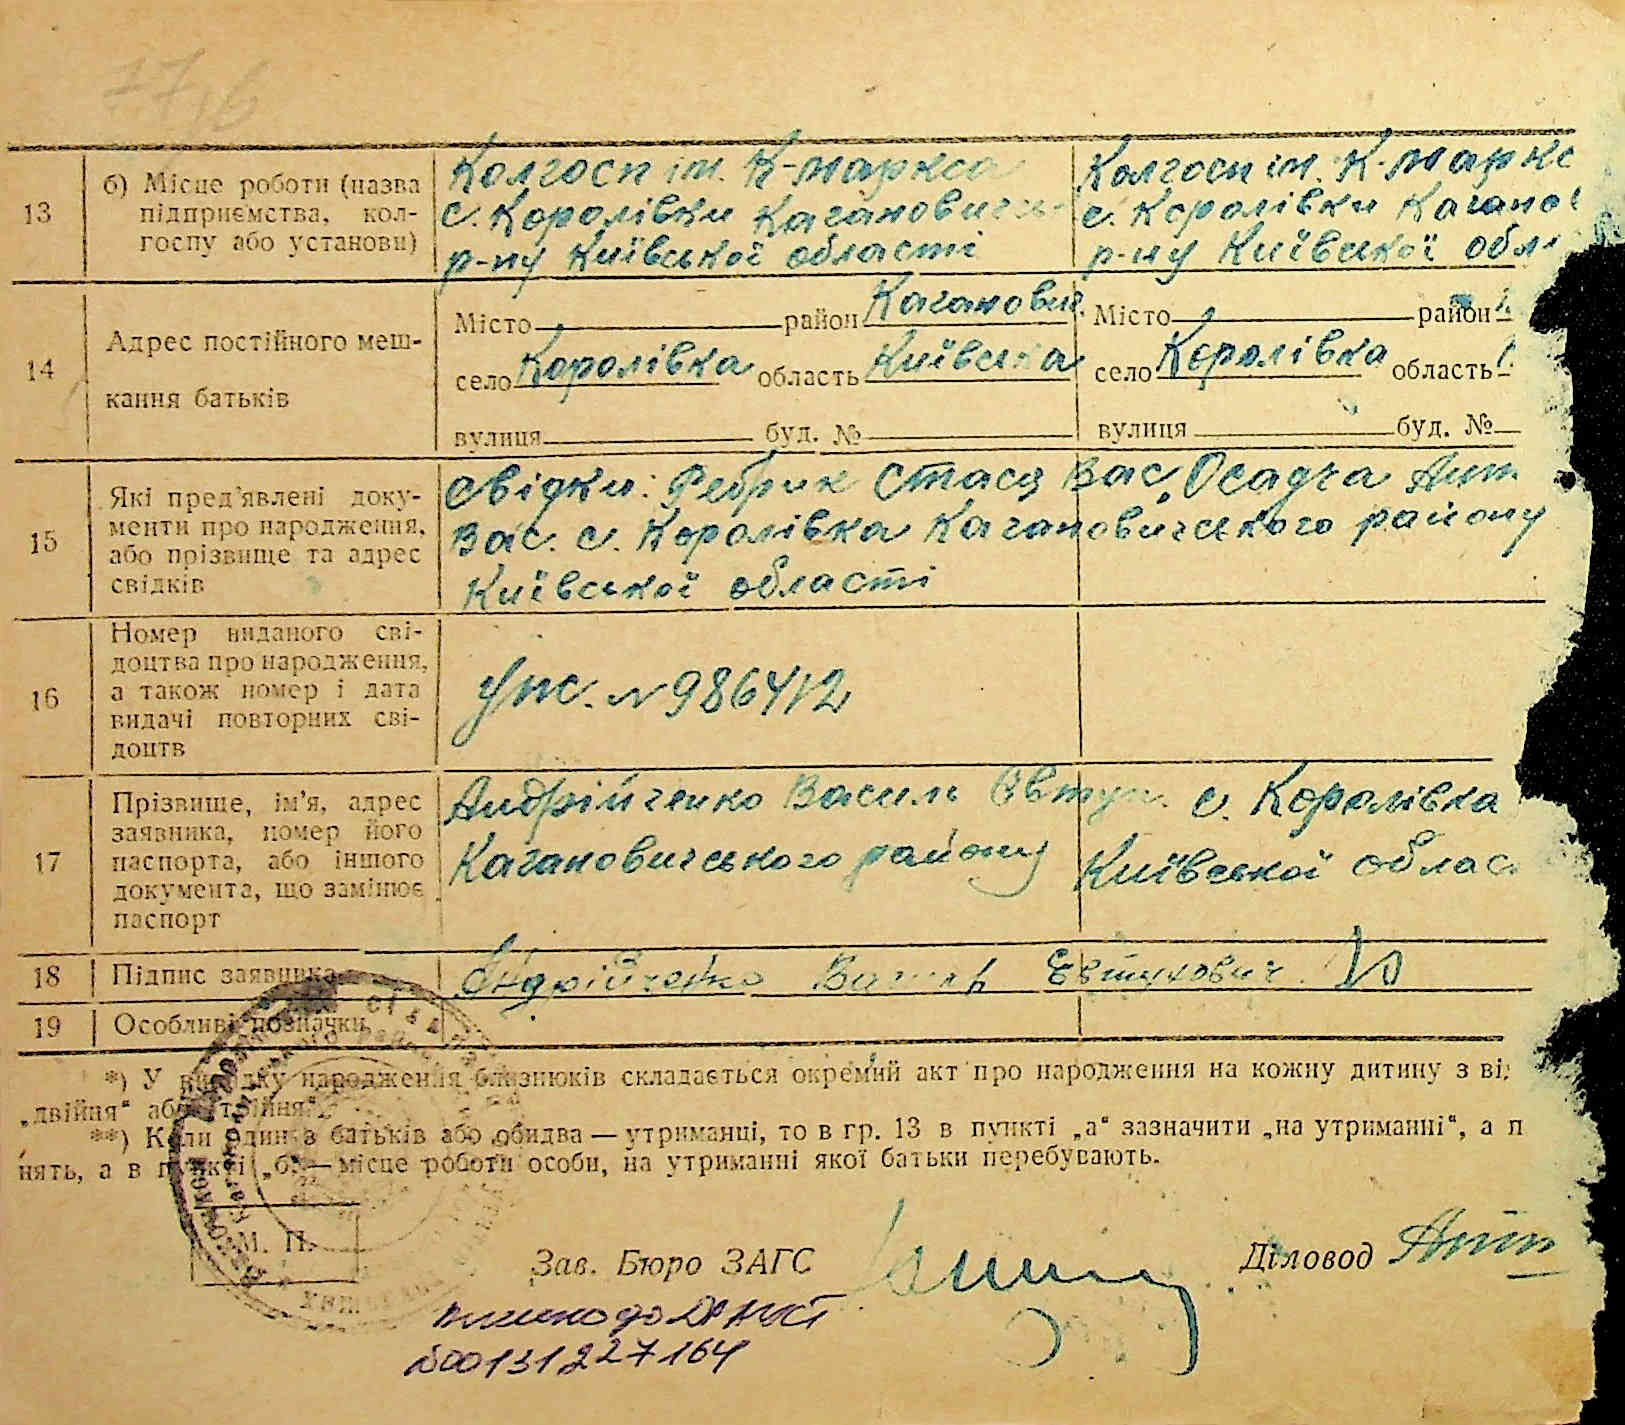 77
13
б) Місце роботи (назва
підприємства, кол-
госпу або установи)
Колгосп ім. К-маркса
с. Королівки Кагановичи-
р-ну Київської області
Колгосп ім. К-маркс
с. Королівки Кагано
р-ну Київської обл
14
Адрес постійного меш-
кання батьків
Місто район Каганович.
село Королівка область Київська
вулиця буд. №
Місто район
село Королівка область
вулиця буд. №
15
Які пред'явлені доку-
менти про народження,
або прізвище та адрес
свідків
Свідки: Ребрик Стася Вас, Осадча Ант
Вас. с. Королівка Кагановичського району
Київської області
16
Номер виданого сві-
доцтва про народження,
а також номер і дата
видачі повторних сві-
доцтв
№ 986412
17
Прізвище, ім'я, адрес
заявника, номер його
паспорта, або іншого
документа, що замінює
паспорт
Андрійченко Василь Євтух. с. Королівка
Кагановичського району Київської облас
18
Підпис заявника
Андрійченко Василь Євтухович
19
Особливі позначки
*) У випадку народження близнюків складається окремий акт про народження на кожну дитину з ві
„двійня“ або „трійня“.
**) Коли один з батьків або обидва — утриманці, то в гр. 13 в пункті „а“ зазначити „на утриманні“, а п
нять, а в пункті „б“ — місце роботи особи, на утриманні якої батьки перебувають.
М. П.
Зав. Бюро ЗАГС
Діловод
внесено до ДРАЦСГ
№00131227164